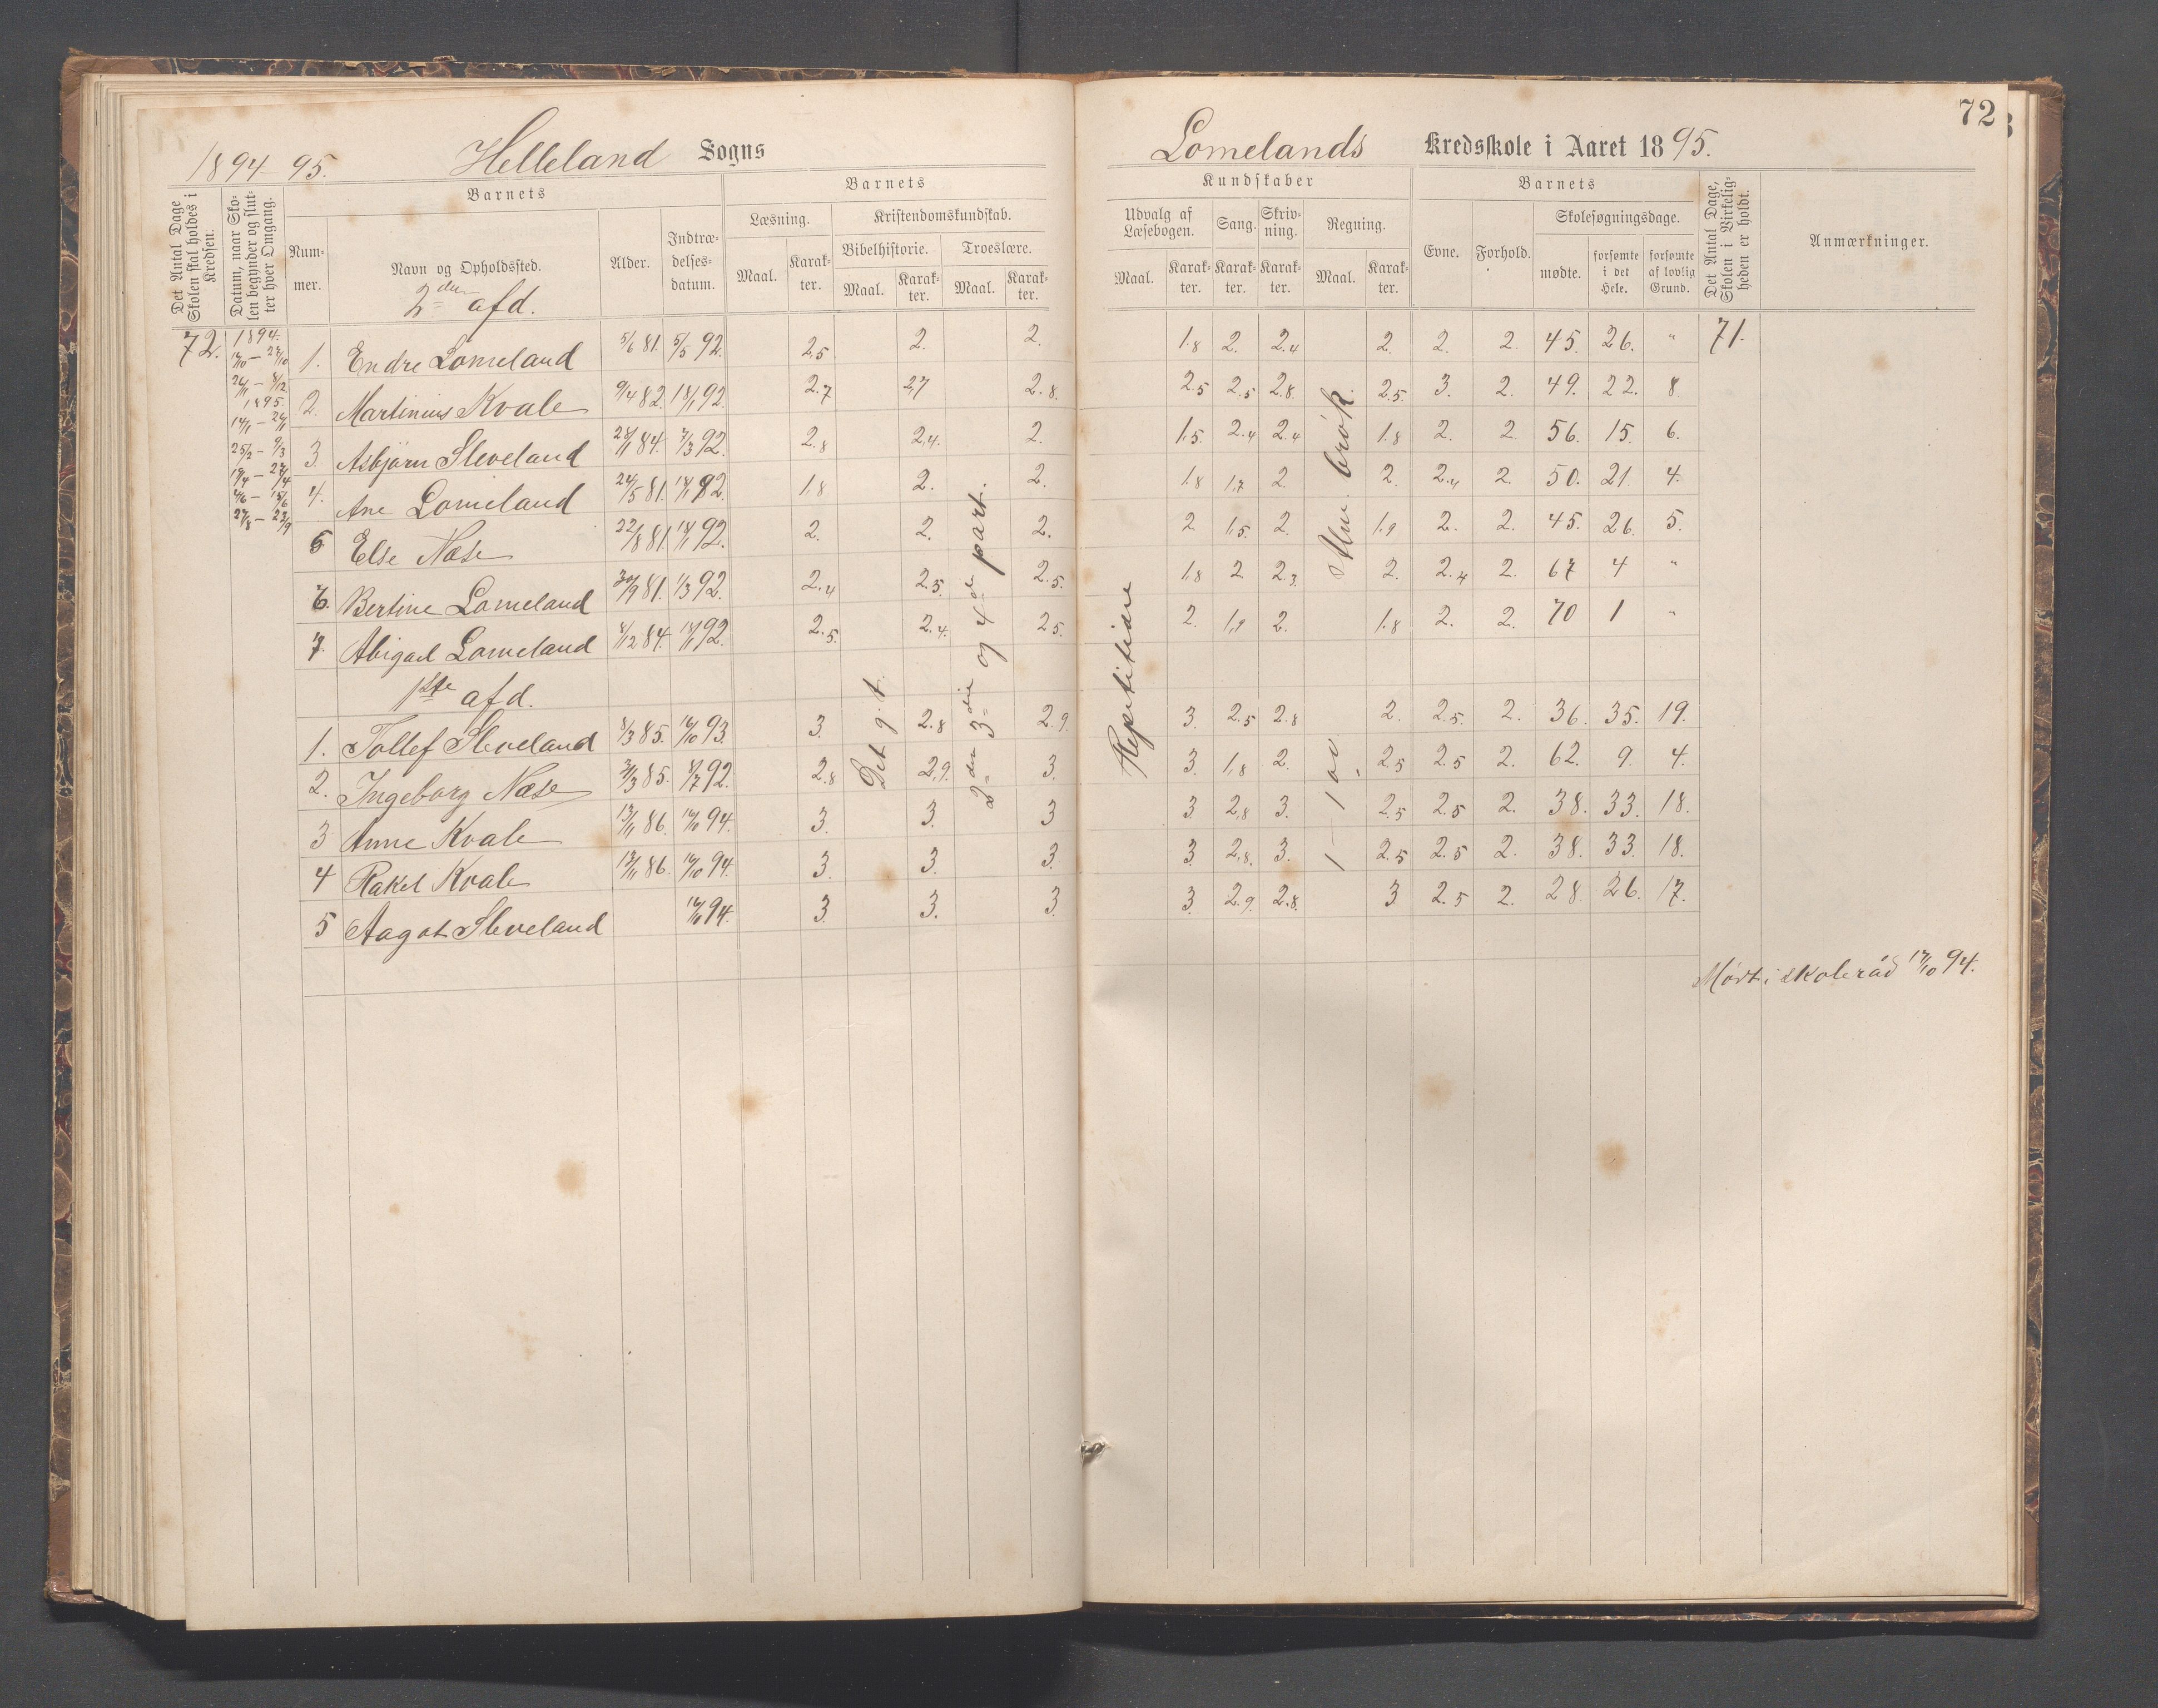 72
1894-95. Helleland Sogns
Lomelands Kredsskole i Aaret 1895.
Det Antal Dage Skolen skal holdes i Kredsen.
Datum, naar Skolen begynder og slutter hver Omgang.
Barnets
Nummer.
Navn og Opholdssted.
Alder.
Indtrædelsesdatum.
Barnets
Læsning.
Maal.
Karakter.
Kristendomskundskab.
Bibelhistorie.
Maal.
Karakter.
Troeslære.
Maal.
Karakter.
Kundskaber
Udvalg af Læsebogen.
Maal.
Karakter.
Sang.
Karakter.
Skrivning.
Karakter.
Regning.
Maal.
Karakter.
Barnets
Evne.
Forhold.
Skolesøgningsdage.
mødte.
forsømte i det Hele.
forsømte af lovlig Grund.
Det Antal Dage, Skolen i Virkeligheden er holdt.
Anmærkninger.
2den afd.
72. 1894.
1895.
25/2 - 9/3
1. Endre Lomeland 5/6 81. 5/5 92. 2,5 2. 2. 1.8 2. 2.4 2. 2. 2. 45. 26. " 71.
2. Martinius Kvale 9/4 82. 18/1 92. 2.7 2,7 2.8. 2.5 2.5 2.8. 2.5. 3. 2. 49. 22. 8
3. Asbjørn Sleveland 28/11 84. 7/3 92. 2.8 2,4. 2. 1,5. 2.4 2.4 1.8 2. 2. 56. 15. 6.
4. Ane Lomeland 24/5 81. 18/1 92. 1,8 2. 2. 1.8 1,7 2. 2. 2.4 2. 50. 21. 4.
5 Else Næse 22/8 81. 18/1 92. 2. 2. 2. 2 1,5. 2. 1.9 2. 2. 45. 26. 5.
6. Bertine Lomeland 30/9 81. 1/3 92. 2.4 2.5. 2.5. 1,8 2 2.3. 2. 2.4 2. 67 4 "
7. Abigael Lomeland 8/12 84. 18/1 92. 2.5. 2.4. 2 5. 2. 1,9 2. 1.8 2. 2. 70 1 "
1ste afd.
1. Tollef Sleveland 8/3 85. 16/10 93. 3. 2.8 2.9 3. 2.5 2.8 2. 2.5. 2. 36. 35. 19.
2. Ingeborg Næse 3/3 85. 8/7 92. 2.8 2,9. 3. 3. 1,8 2. 2.5 2.5 2. 62. 9. 4.
3 Anne Kvale 13/11 86. 16/10 94. 3. 3. 3 3. 2,8 3. 2.5 2.5 2. 38. 33. 18.
4 Rakel Kvale 13/11 86. 16/10 94. 3. 3. 3. 3. 2,8. 3. 2.5 2.5 2. 38. 33. 18.
5 Aagot Sleveland 16/10 94. 3. 3. 3. 3. 2.9. 2.8. 3 2.5 2. 28. 26. 17.
Det g. t.
2den 3die og 4de part.
Repetitioner
Alm. brøk.
Mødt i skoleråd 17/10 94.